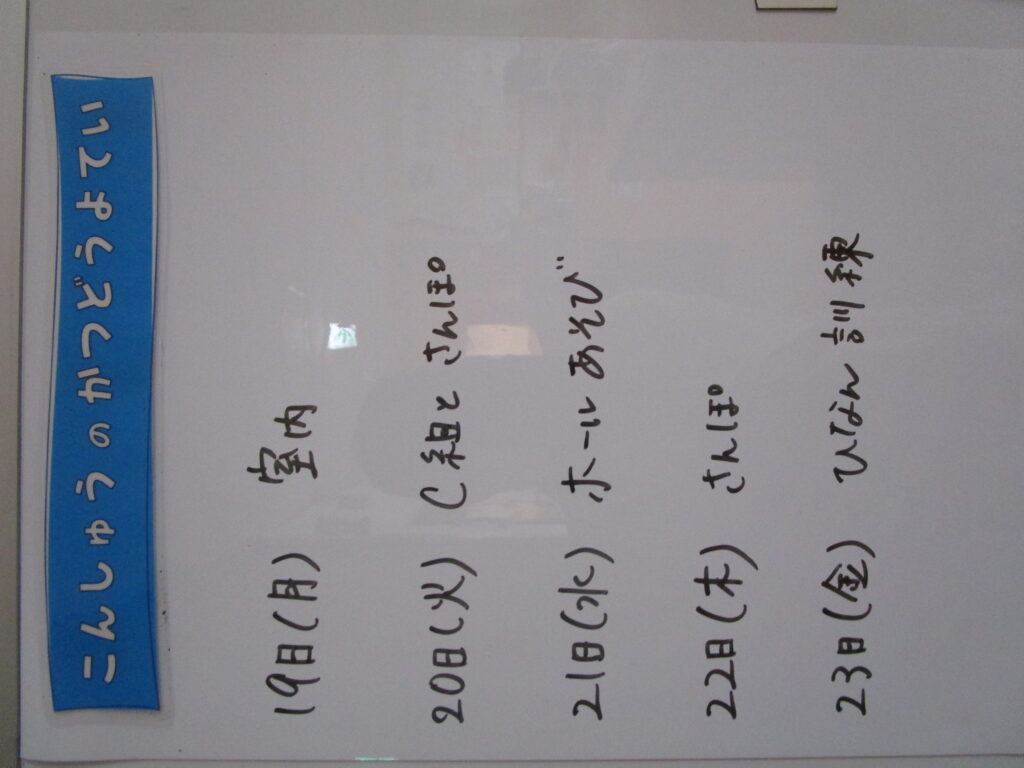 こんしゅうのかつどうよてい
19日(月) 室内
20日(火) C組と さんぽ
21日(水) ホールあそび
22日(木) さんぽ
23日(金) ひなん訓練